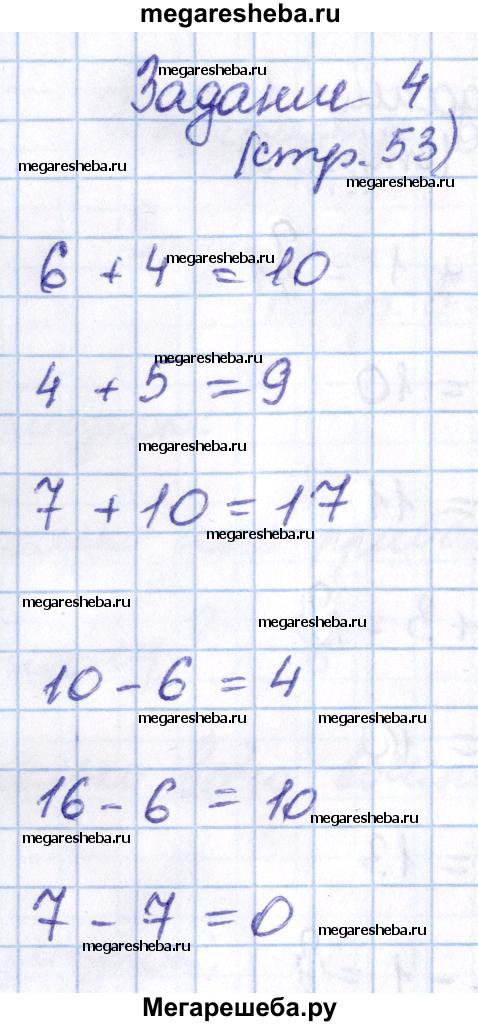 megaresheba.ru
megaresheba.ru
Задание 4
megaresheba.ru
(стр. 53)
megaresheba.ru
megaresheba.ru
6 + 4 = 10
megaresheba.ru
4 + 5 = 9
megaresheba.ru
7 + 10 = 17
megaresheba.ru
megaresheba.ru
megaresheba.ru
10 - 6 = 4
megaresheba.ru
megaresheba.ru
16 - 6 = 10
megaresheba.ru
megaresheba.ru
7 - 7 = 0
megaresheba.ru
megaresheba.ru
Мегарешеба.ру